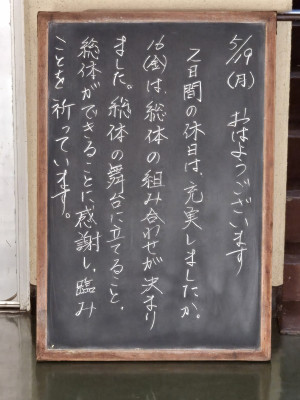 5/19(月) おはようございます
2日間の休日は、充実しましたか。
16(金)は、総体の組み合わせが決まり
ました。総体の舞台に立てること、
総体ができることに感謝し、臨み
ことを祈っています。